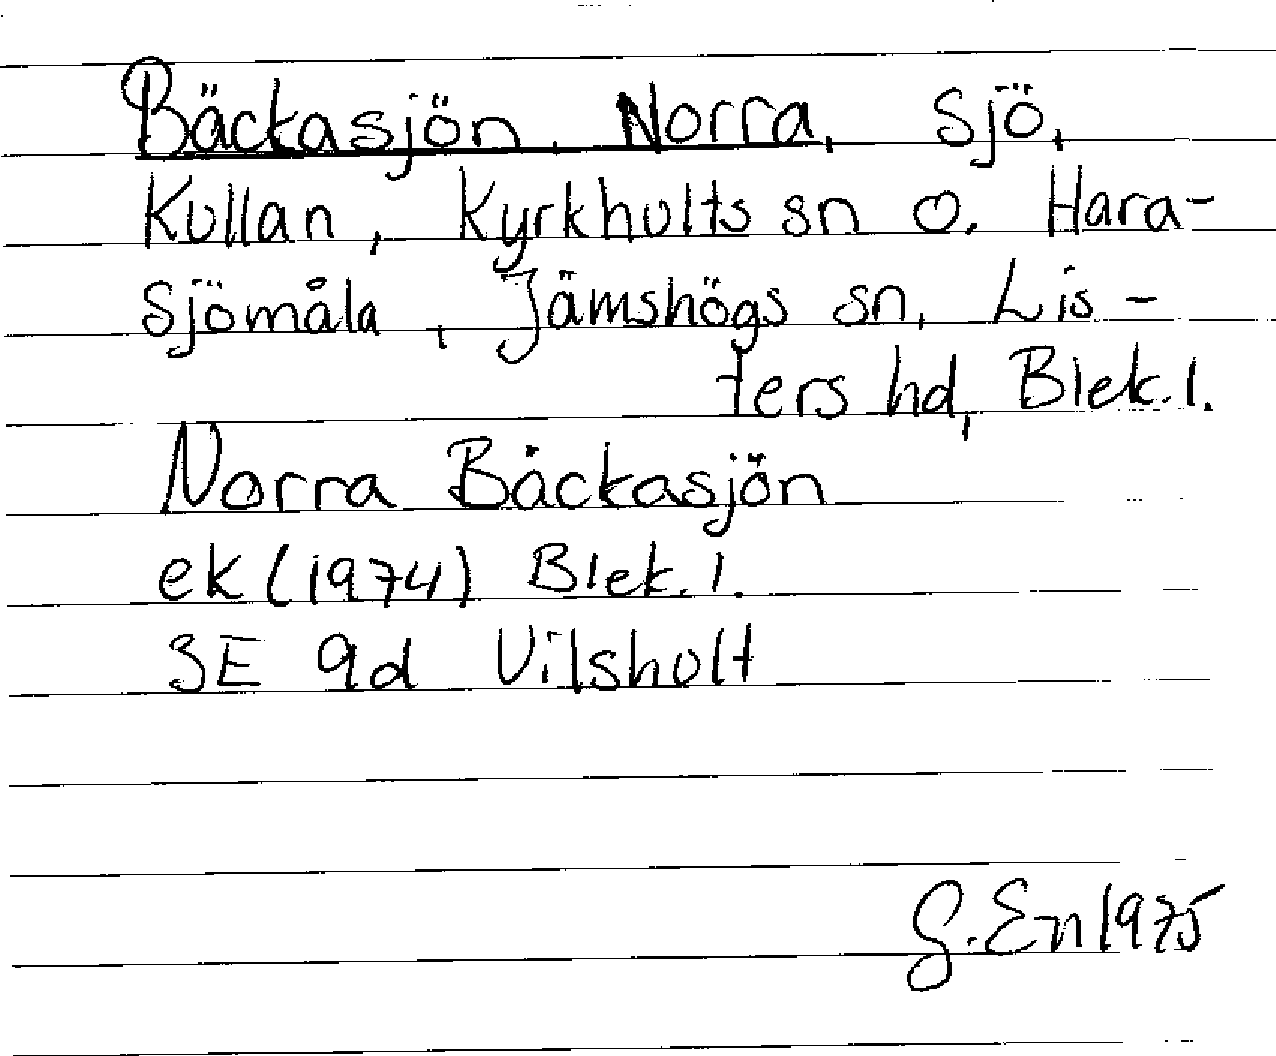 Bäckasjön, Norra, Sjö,
Kullan, Kyrkhults sn o. Hara-
sjömåla, Jämshögs sn, Lis-
ters hd, Blek. l.
Norra Bäckasjön
ek (1974) Blek. l.
3E 9d Vilsholt
G. En 1975